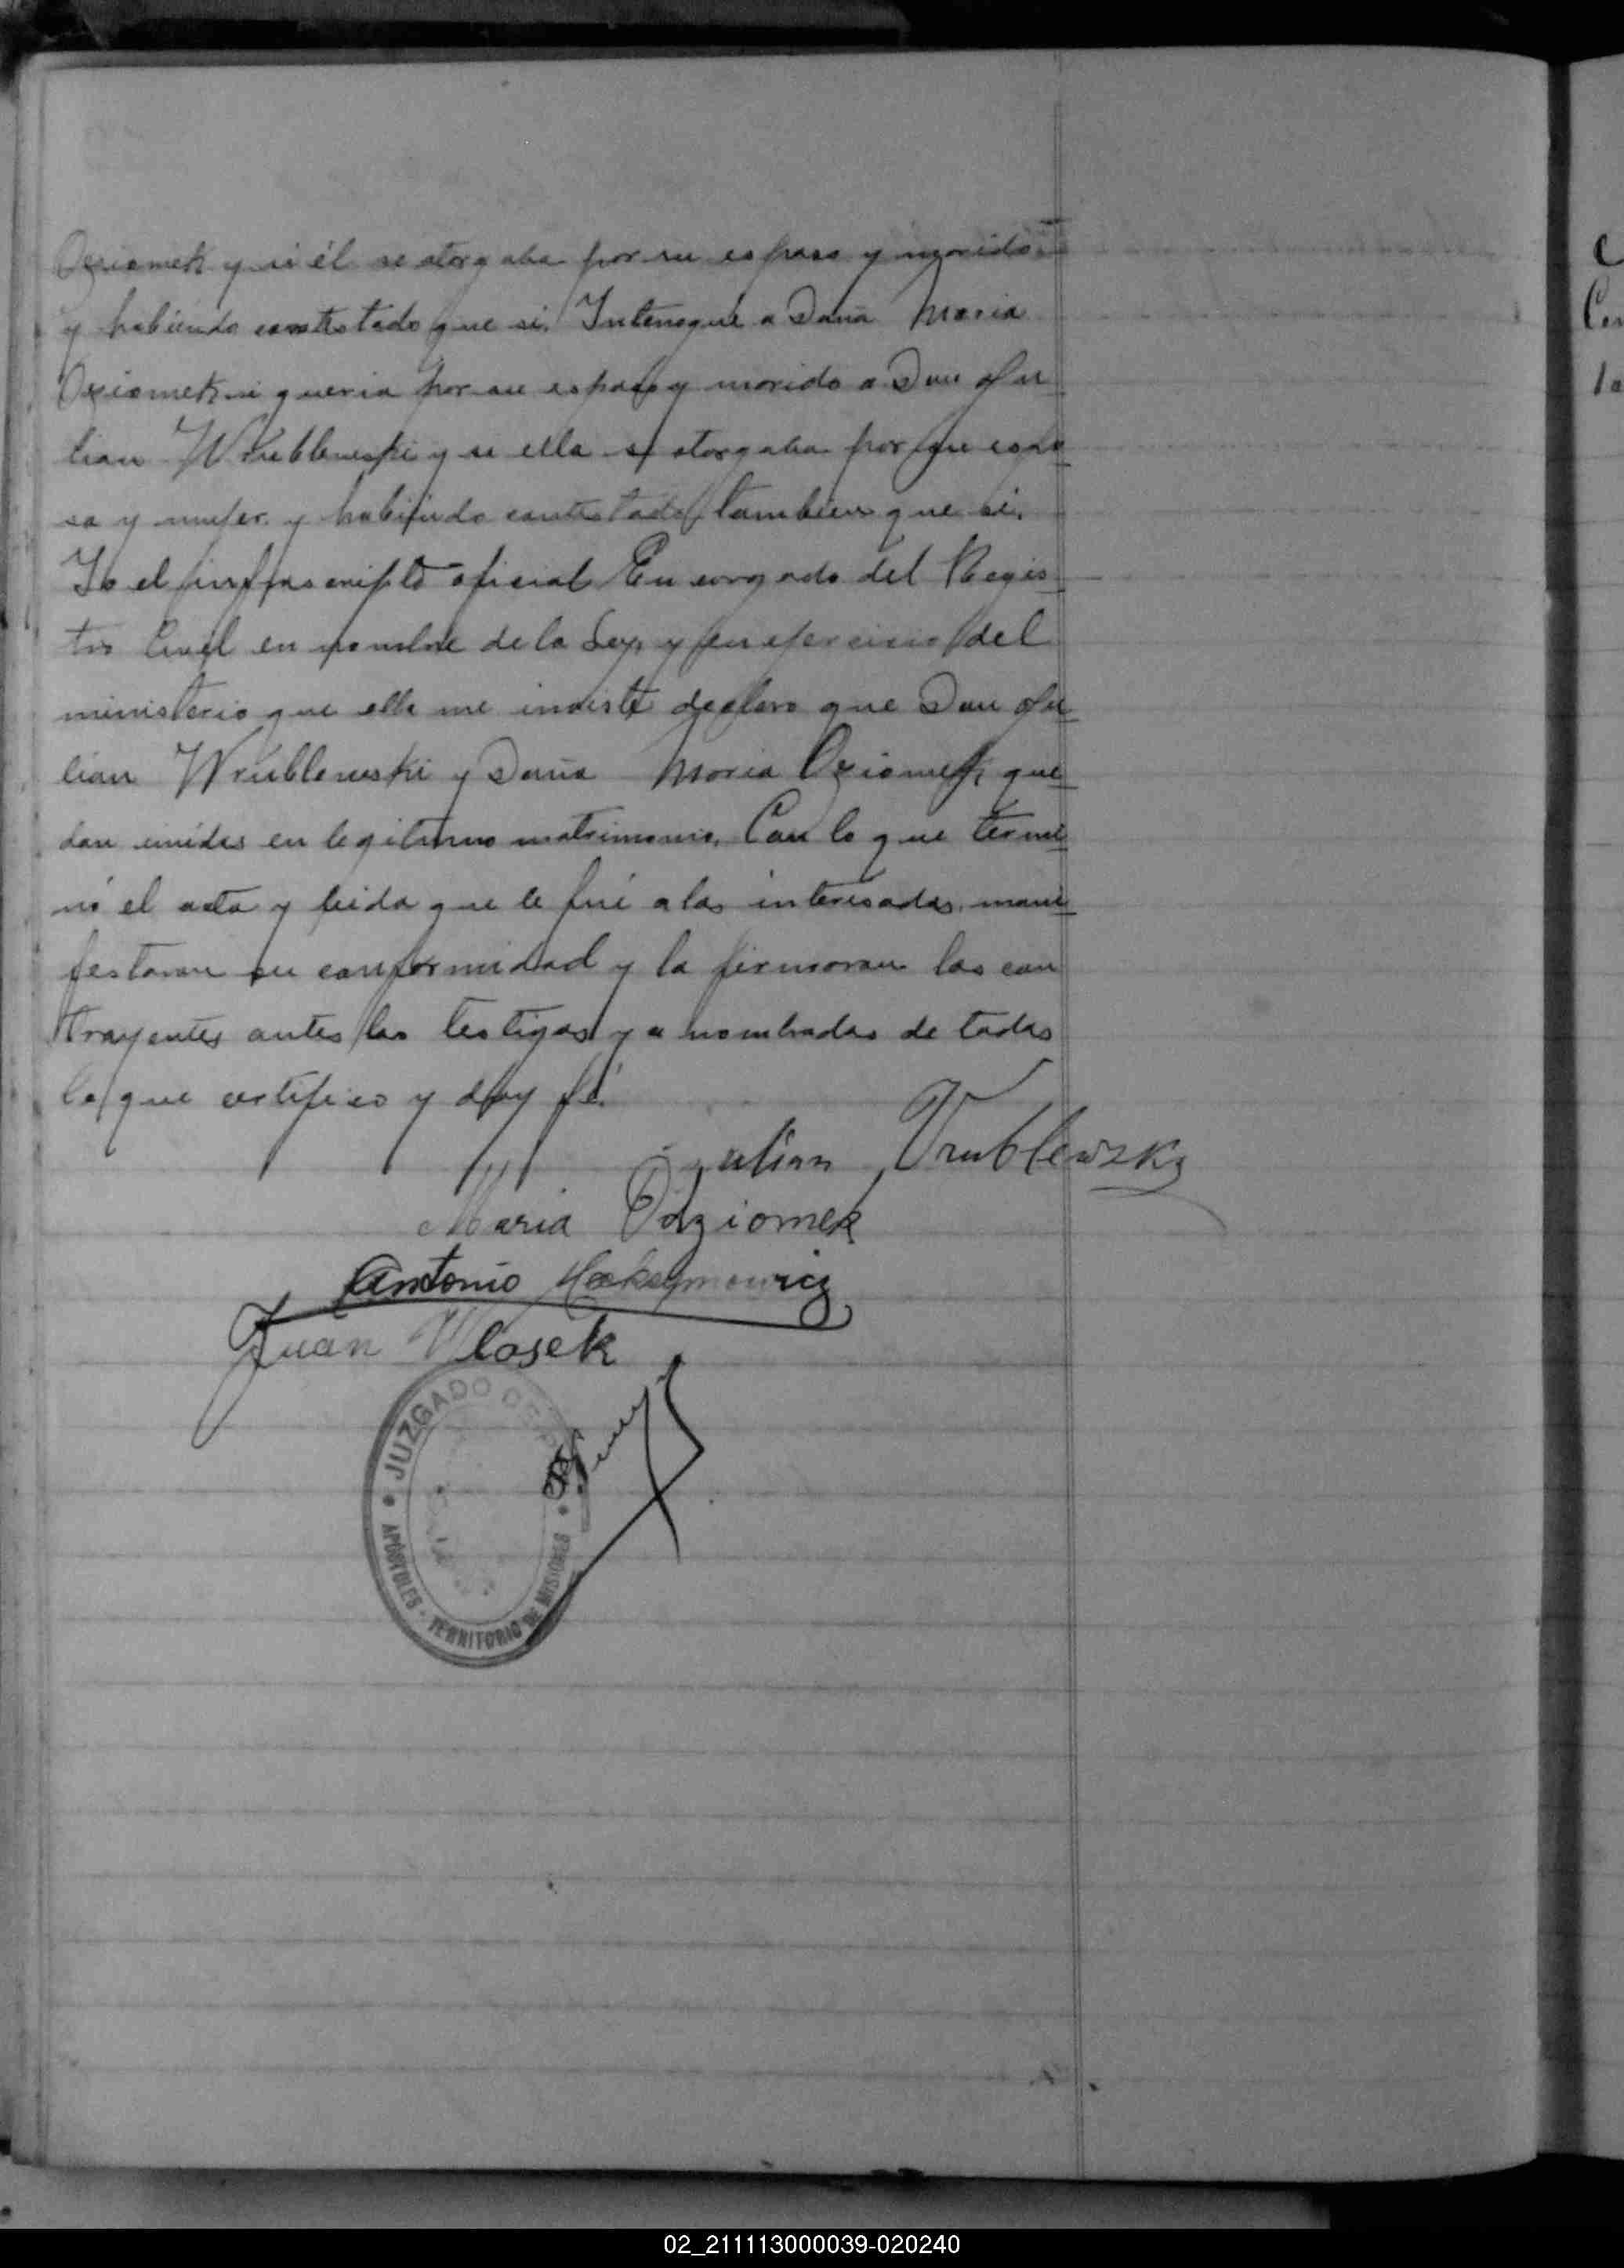 Oziomek y si él se otorgaba por su esposo y marido
y habiendo contestado que si. Interogué a Doña Maria
Oziomek si queria por su esposo y marido a Don Ju
lian Wrublewski y si ella se otorgaba por su espo
sa y mujer y habiendo contestado tambien que si.
Yo el infrascripto oficial Encargado del Regis
tro Civil en nombre de la Ley y en ejercicio del
ministerio que ella me inviste declaro que Don Ju
lian Wrublewski y Doña Maria Oziomek que
dan unidos en legitimo matrimonio. Con lo que termi
nó el acta y leida que le fué a los interesados mani
festaron su conformidad y la firmaron los con
trayentes antes los testigos ya nombrados de todos
lo que certifico y doy fé.
Julian Vrublewzky
Maria Odziomek
Antonio Maksymowicz
Juan Wlosek
JUZGADO DE
APOSTOLES - TERRITORIO DE MISIONES
C
Con
la
02_211113000039-020240